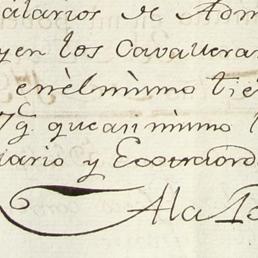 alarios de Adm
yen los Cavallera
enèl mismo tie
que asi mismo
iario y Extraord
Ala